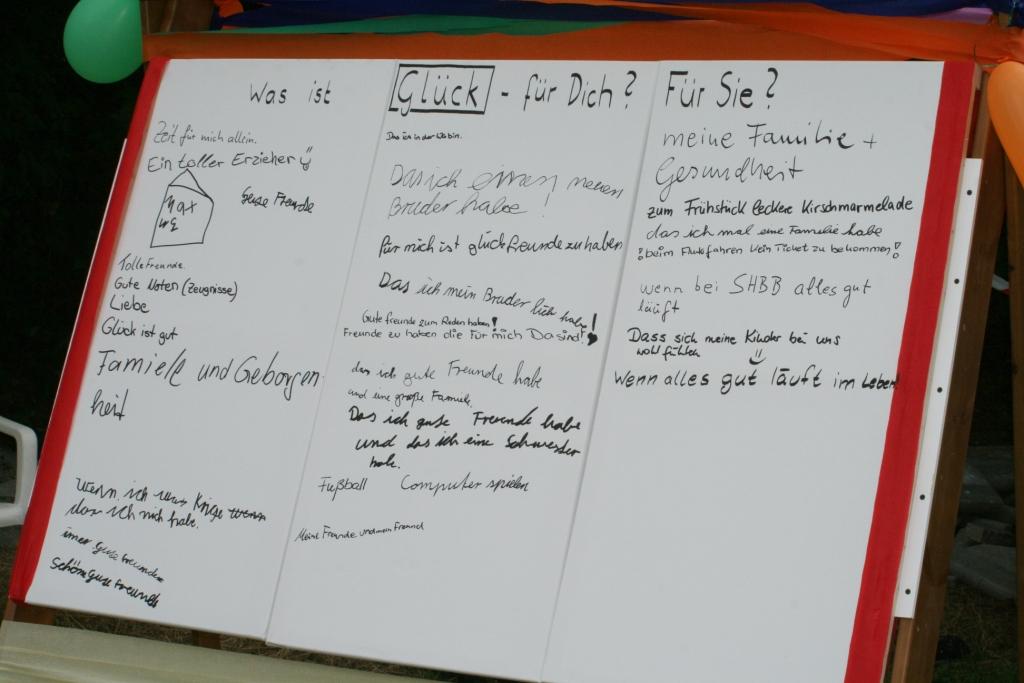 Was ist Glück - für Dich? Für Sie?
Zeit für mich allein.
Ein toller Erzieher
Gute Freunde
Tolle Freunde.
Gute Noten (Zeugnisse)
Liebe
Glück ist gut
Famiele und Geborgen
heit
Wenn ich was Kriege wenn
das ich mich habe.
imer gute freunden
Schöm gute Freunde
Das ich in der WG bin.
Das ich einen neuen
Bruder habe!
Für mich ist glück freunde zu haben
Das ich mein Bruder lieb habe!
Gute freunde zum Reden haben!
Freunde zu haben die für mich Da sind!
das ich gute Freunde habe
und eine große Familie.
Das ich gute Freunde habe
und das ich eine Schwester
hab.
Fußball Computer spielen
Meine Freunde und mein Freund
meine Familie +
Gesundheit
zum Frühstück leckere Kirschmarmelade
das ich mal eine Familie habe
!beim Autofahren kein Ticket zu bekommen!
wenn bei SHBB alles gut
läuft
Dass sich meine Kinder bei uns
wohl fühlen
Wenn alles gut läuft im Leben!